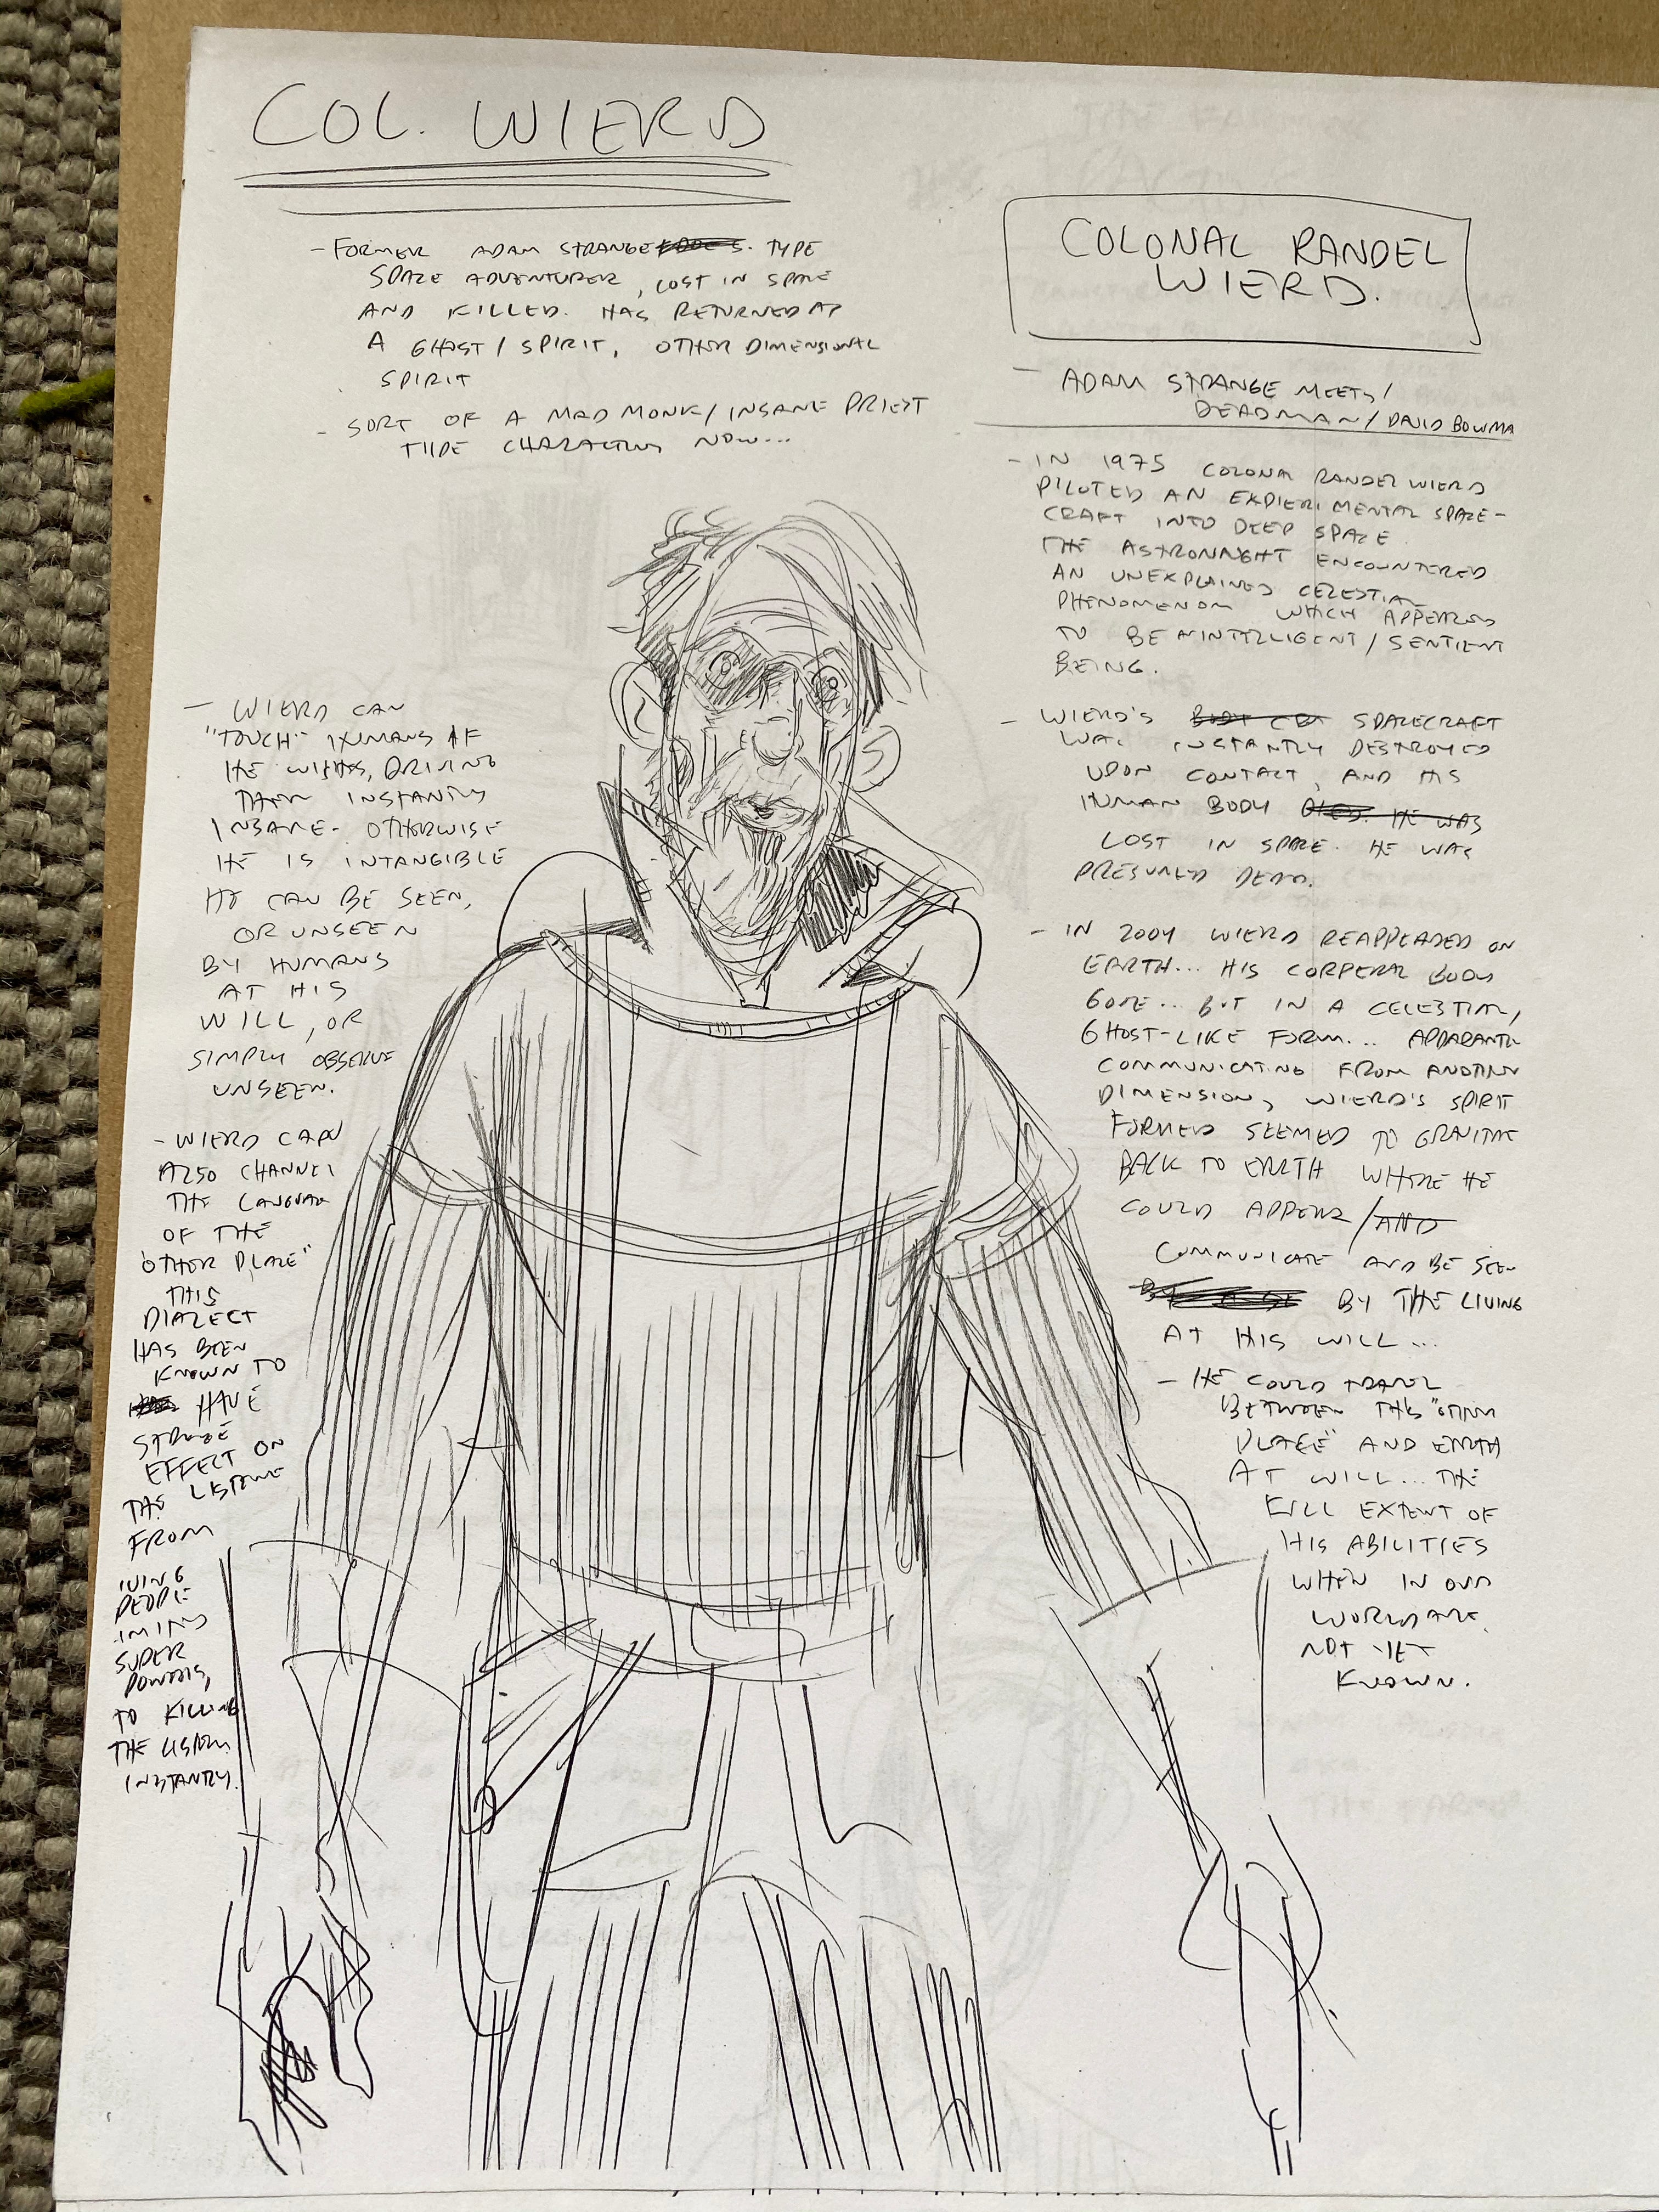 COL. WIERD
- FORMER ADAM STRANGE TYPE
SPACE ADVENTURER, LOST IN SPACE
AND KILLED. HAS RETURNED AS
A GHOST / SPIRIT, OTHER DIMENSIONAL
SPIRIT
- SORT OF A MAD MONK / INSANE PRIEST
TYPE CHARACTERS NOW...
COLONAL RANDEL
WIERD.
- ADAM STRANGE MEETS /
DEADMAN / DAVID BOWMA
- IN 1975 COLONAL RANDEL WIERD
PILOTED AN EXPIERIMENTAL SPACE-
CRAFT INTO DEEP SPACE.
THE ASTRONNGHT ENCOUNTERED
AN UNEXPLAINED CELESTIAL
PHENOMENOM WHICH APPEARED
TO BE INTELLIGENT / SENTIENT
BEING.
- WIERD'S SPACECRAFT
WAS INSTANTLY DESTROYED
UPON CONTACT, AND HIS
HUMAN BODY DIED. HE WAS
LOST IN SPACE. HE WAS
PRESUMED DEAD.
- IN 2004 WIERD REAPPEADED ON
EARTH... HIS CORPERAL BODY
GONE... BUT IN A CELESTIAL,
GHOST-LIKE FORM... APPARANTLY
COMMUNICATING FROM ANOTHER
DIMENSION, WIERD'S SPIRIT
FORMED SEEMED TO GRAVITATE
BACK TO EARTH WHERE HE
COULD APPEAR / AND
COMMUNICATE AND BE SEEN
BY THE LIVING
AT HIS WILL...
- HE COULD TRAVEL
BETWEEN THIS "OTHER
PLACE" AND EARTH
AT WILL... THE
FULL EXTENT OF
HIS ABILITIES
WHEN IN OUR
WORLD ARE
NOT YET
KNOWN.
- WIERD CAN
"TOUCH" HUMANS IF
HE WISHES, DRIVING
THEM INSTANTLY
INSANE - OTHERWISE
HE IS INTANGIBLE
HE CAN BE SEEN,
OR UNSEEN
BY HUMANS
AT HIS
WILL, OR
SIMPLY OBSERVE
UNSEEN.
- WIERD CAN
ALSO CHANNEL
THE LANGUAGE
OF THE
"OTHER PLACE"
THIS
DIALECT
HAS BEEN
KNOWN TO
HAVE
STRANGE
EFFECT ON
THE LISTENER
FROM
GIVING
PEOPLE
SUPER
POWERS,
TO KILLING
THE LISTENER
INSTANTLY.